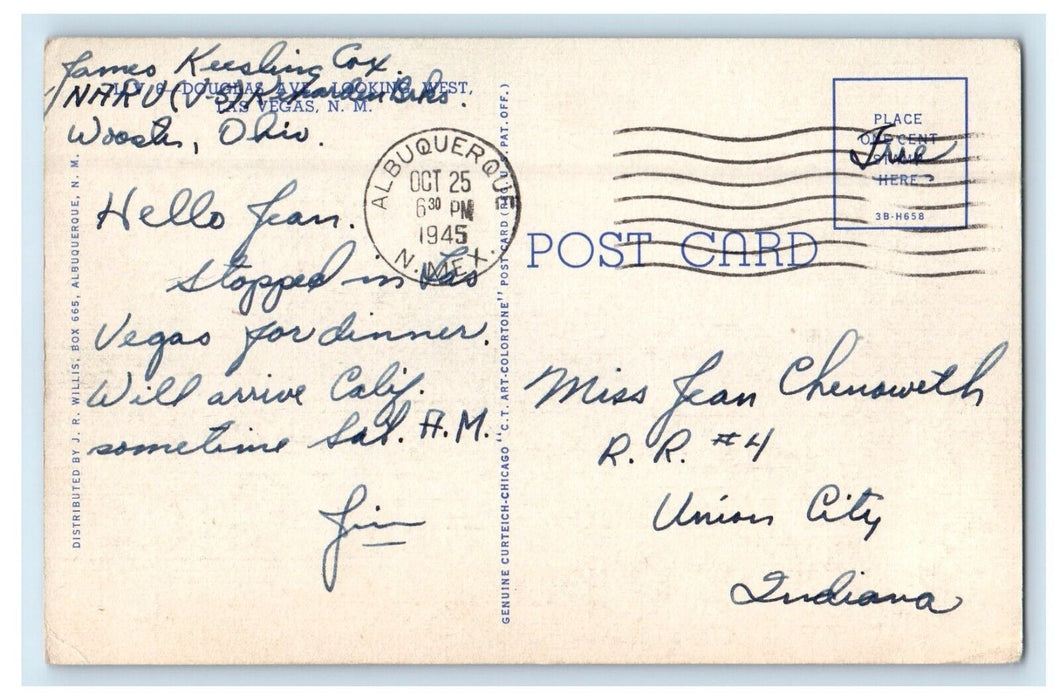 James Keesling Cox.
NARU (V-5) Richardson Brks.
Wooster, Ohio.
LV 6—DOUGLAS AVE., LOOKING WEST,
LAS VEGAS, N. M.
Hello Jean.
Stopped in Las
Vegas for dinner.
Will arrive Calif.
sometime Sat. A.M.
Jim
DISTRIBUTED BY J. R. WILLIS, BOX 665, ALBUQUERQUE, N. M.
ALBUQUERQUE
OCT 25
6 30 PM
1945
N. MEX.
GENUINE CURTEICH-CHICAGO "C. T. ART-COLORTONE" POST CARD (REG. U. S. PAT. OFF.)
POST CARD
PLACE
ONE CENT
STAMP
HERE
3B-H658
Free
Miss Jean Chenoweth
R. R. #4
Union City
Indiana